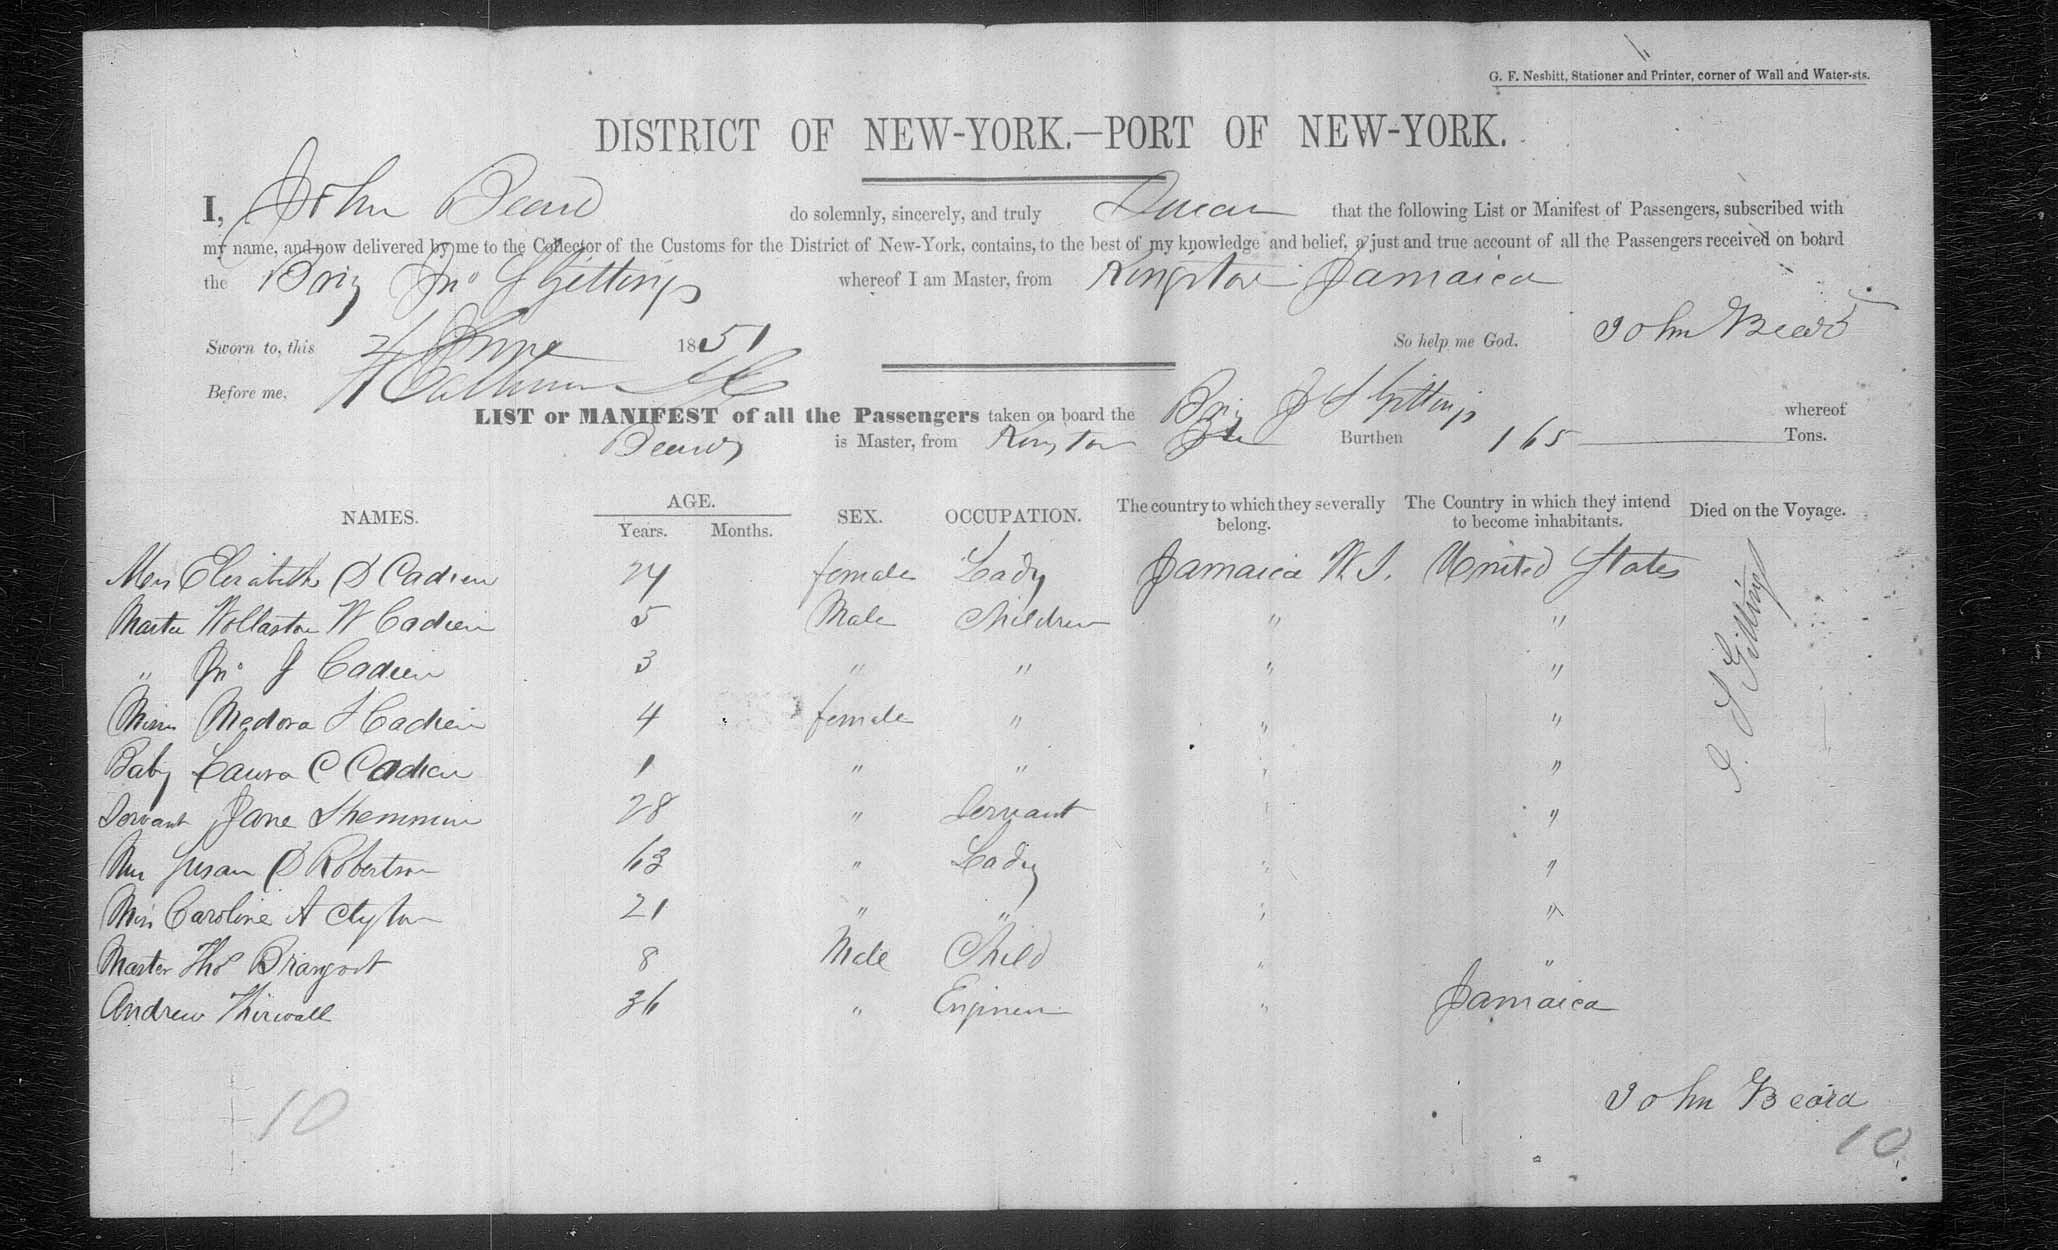 G. F. Nesbitt, Stationer and Printer, corner of Wall and Water-sts.
DISTRICT OF NEW-YORK.—PORT OF NEW-YORK.
I, John Beard do solemnly, sincerely, and truly Swear that the following List or Manifest of Passengers, subscribed with
my name, and now delivered by me to the Collector of the Customs for the District of New-York, contains, to the best of my knowledge and belief, a just and true account of all the Passengers received on board
the Brig Jno S Gittings whereof I am Master, from Kingston Jamaica
Sworn to, this June 1851 So help me God. John Beard
Before me,
LIST or MANIFEST of all the Passengers taken on board the Brig J S Gittings whereof
Beard is Master, from Kingston Burthen 165 Tons.
NAMES. AGE. Years. Months. SEX. OCCUPATION. The country to which they severally belong. The Country in which they intend to become inhabitants. Died on the Voyage.
Mrs Elizabeth D Cadien 24 female Lady Jamaica W. I. United States
Master Wollaston W Cadien 5 Male Children " "
" Jno J Cadien 3 " " " "
Miss Medora Cadien 4 female " " "
Baby Laura C Cadien 1 " " " "
Servant Jane 28 " Servant " "
Mrs Susan D Robertson 63 " Lady " "
Miss Caroline A Clyton 21 " " " "
Master Thos 8 Male Child " "
Andrew Thirwall 36 " Engineer " Jamaica
J. S Gittings
John Beard
10
10